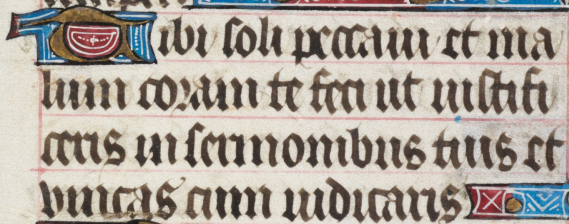 Tibi soli peccaui et ma
lum coram te feci ut iustifi
ceris in sermonibus tuis et
vincas cum iudicaris